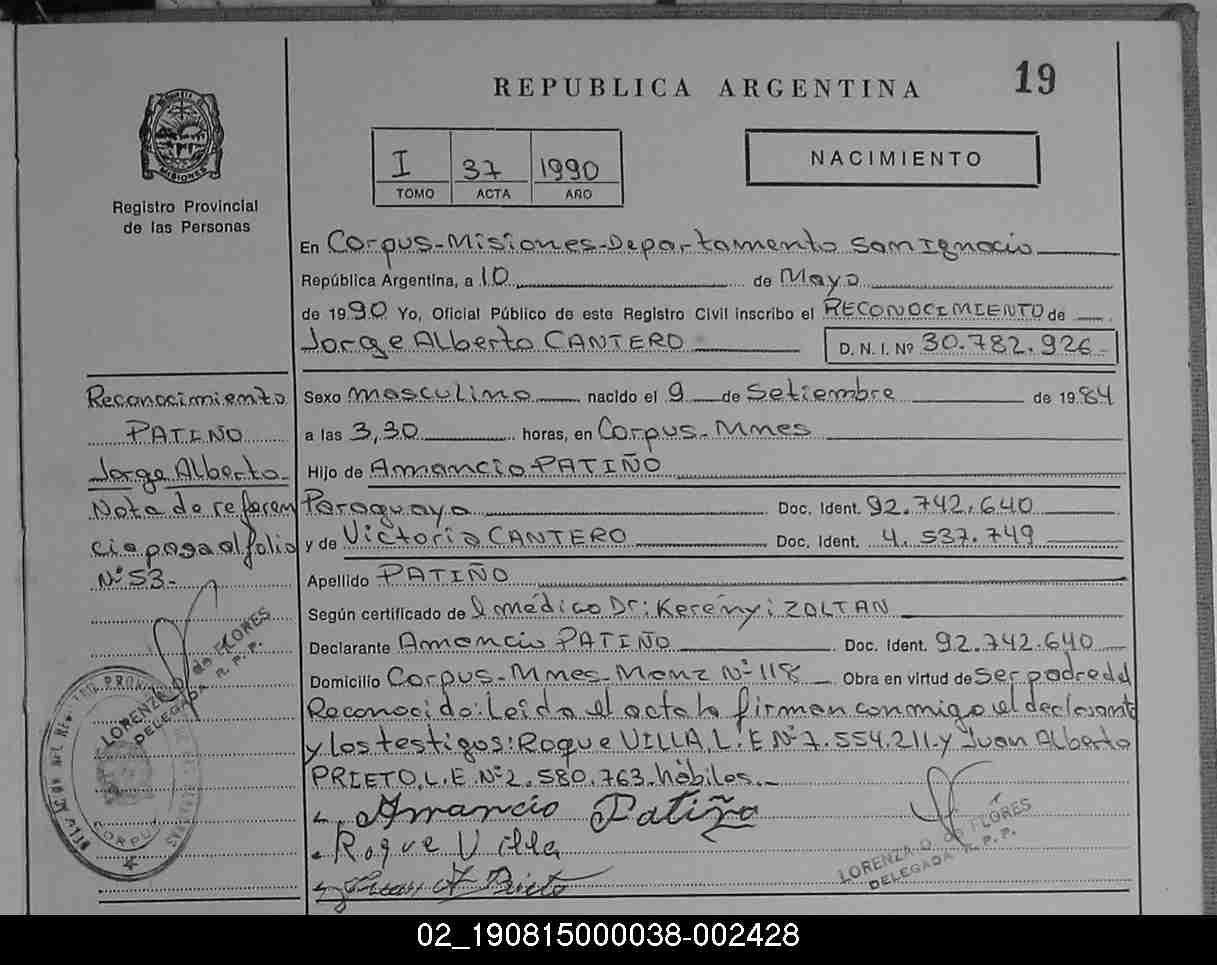 REPUBLICA ARGENTINA
19
MISIONES
Registro Provincial
de las Personas
I 37 1990
TOMO ACTA AÑO
NACIMIENTO
En Corpus-Misiones-Departamento San Ignacio
República Argentina, a 10 de Mayo
de 1990 Yo, Oficial Público de este Registro Civil inscribo el RECONOCIMIENTO de
Jorge Alberto CANTERO D. N. I. Nº 30.782.926
Reconocimiento
PATIÑO
Jorge Alberto
Nota de referen
cia pasa al folio
Nº 53-
Sexo masculino nacido el 9 de Setiembre de 1984
a las 3,30 horas, en Corpus-Mnes
Hijo de Amancio PATIÑO
Paraguayo Doc. Ident. 92.742.640
y de Victoria CANTERO Doc. Ident. 4.537.749
Apellido PATIÑO
Según certificado de l médico Dr: Kerényi ZOLTAN
Declarante Amancio PATIÑO Doc. Ident. 92.742.640
Domicilio Corpus-Mnes-Manz Nº 118 Obra en virtud de Ser padre del
Reconocido: Leída el acta la firman conmigo el declarante
y los testigos: Roque VILLA, L.E Nº 7.554.211-y Juan Alberto
PRIETO, L.E. Nº 2.580.763-hábiles-
Amancio Patiño
Roque Villa
Juan A Prieto
LORENZA O. de FLORES
DELEGADA R. P. P.
LORENZA O. de FLORES
DELEGADA R. P. P.
CORPUS
02_190815000038-002428